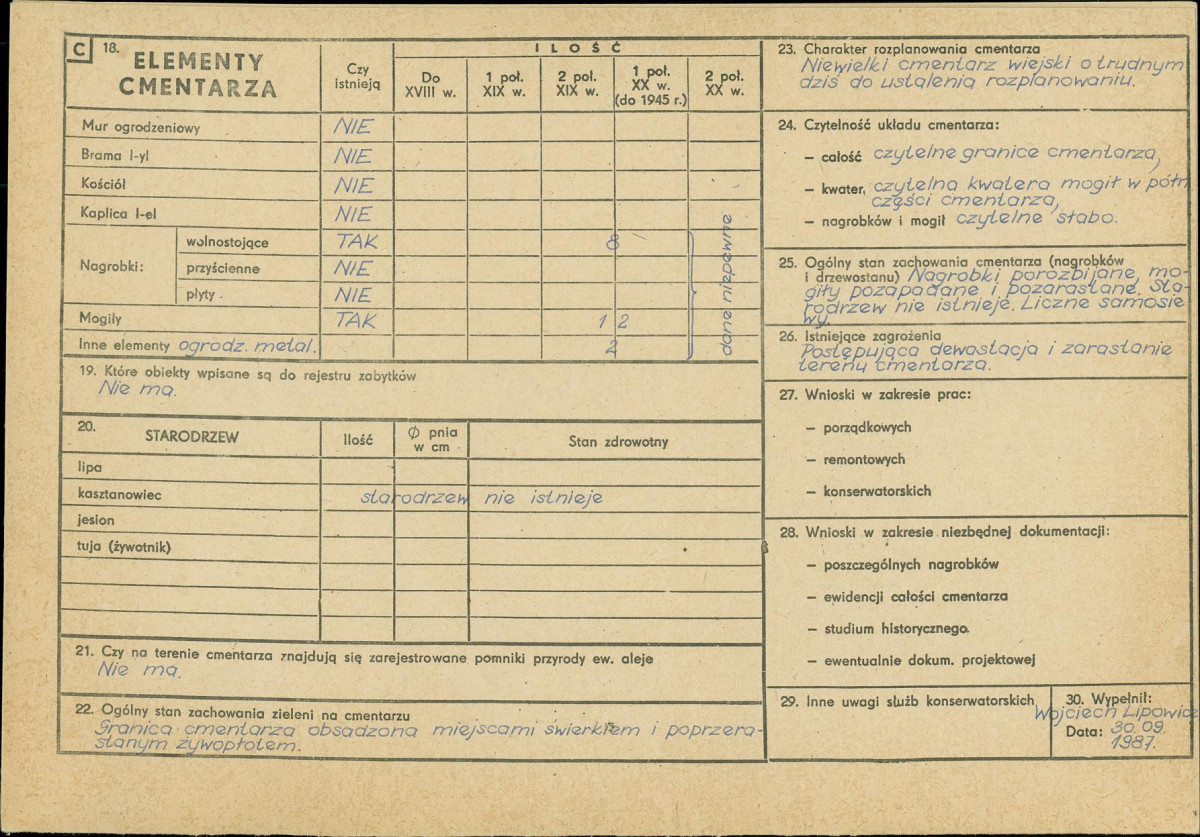 C 18. ELEMENTY CMENTARZA
Czy istnieją
ILOŚĆ
Do XVIII w.
1 poł. XIX w.
2 poł. XIX w.
1 poł. XX w. (do 1945 r.)
2 poł. XX w.
Mur ogrodzeniowy NIE
Brama I-yl NIE
Kościół NIE
Kaplica I-el NIE
Nagrobki:
wolnostojące TAK 8
przyścienne NIE
płyty NIE
Mogiły TAK 12
Inne elementy ogrodz. metal. 2
dane niepewne
19. Które obiekty wpisane są do rejestru zabytków
Nie ma.
20. STARODRZEW Ilość Ø pnia w cm Stan zdrowotny
lipa
kasztanowiec starodrzew nie istnieje
jesion
tuja (żywotnik)
21. Czy na terenie cmentarza znajdują się zarejestrowane pomniki przyrody ew. aleje
Nie ma.
22. Ogólny stan zachowania zieleni na cmentarzu
Granica cmentarza obsadzona miejscami świerkiem i poprzera-
stanym żywopłotem.
23. Charakter rozplanowania cmentarza
Niewielki cmentarz wiejski o trudnym
dziś do ustalenia rozplanowaniu.
24. Czytelność układu cmentarza:
– całość czytelne granice cmentarza,
– kwater, czytelna kwatera mogił w półn
części cmentarza,
– nagrobków i mogił czytelne słabo.
25. Ogólny stan zachowania cmentarza (nagrobków
i drzewostanu) Nagrobki porozbijane, mo-
giły pozapadane i pozarastane. Sta-
rodrzew nie istnieje. Liczne samosie
wy.
26. Istniejące zagrożenia
Postępująca dewastacja i zarastanie
terenu cmentarza.
27. Wnioski w zakresie prac:
– porządkowych
– remontowych
– konserwatorskich
28. Wnioski w zakresie niezbędnej dokumentacji:
– poszczególnych nagrobków
– ewidencji całości cmentarza
– studium historycznego.
– ewentualnie dokum. projektowej
29. Inne uwagi służb konserwatorskich
30. Wypełnił:
Wojciech Lipowicz
Data: 30.09.
1987.